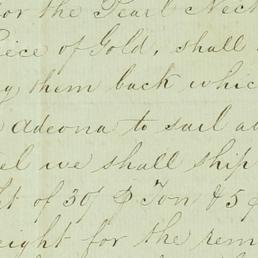 for the Pearl Neck
Piece of Gold, shall
them back whic
Adeona to sail a
we shall ship
of 30/ P Ton & 5
eight for the rem